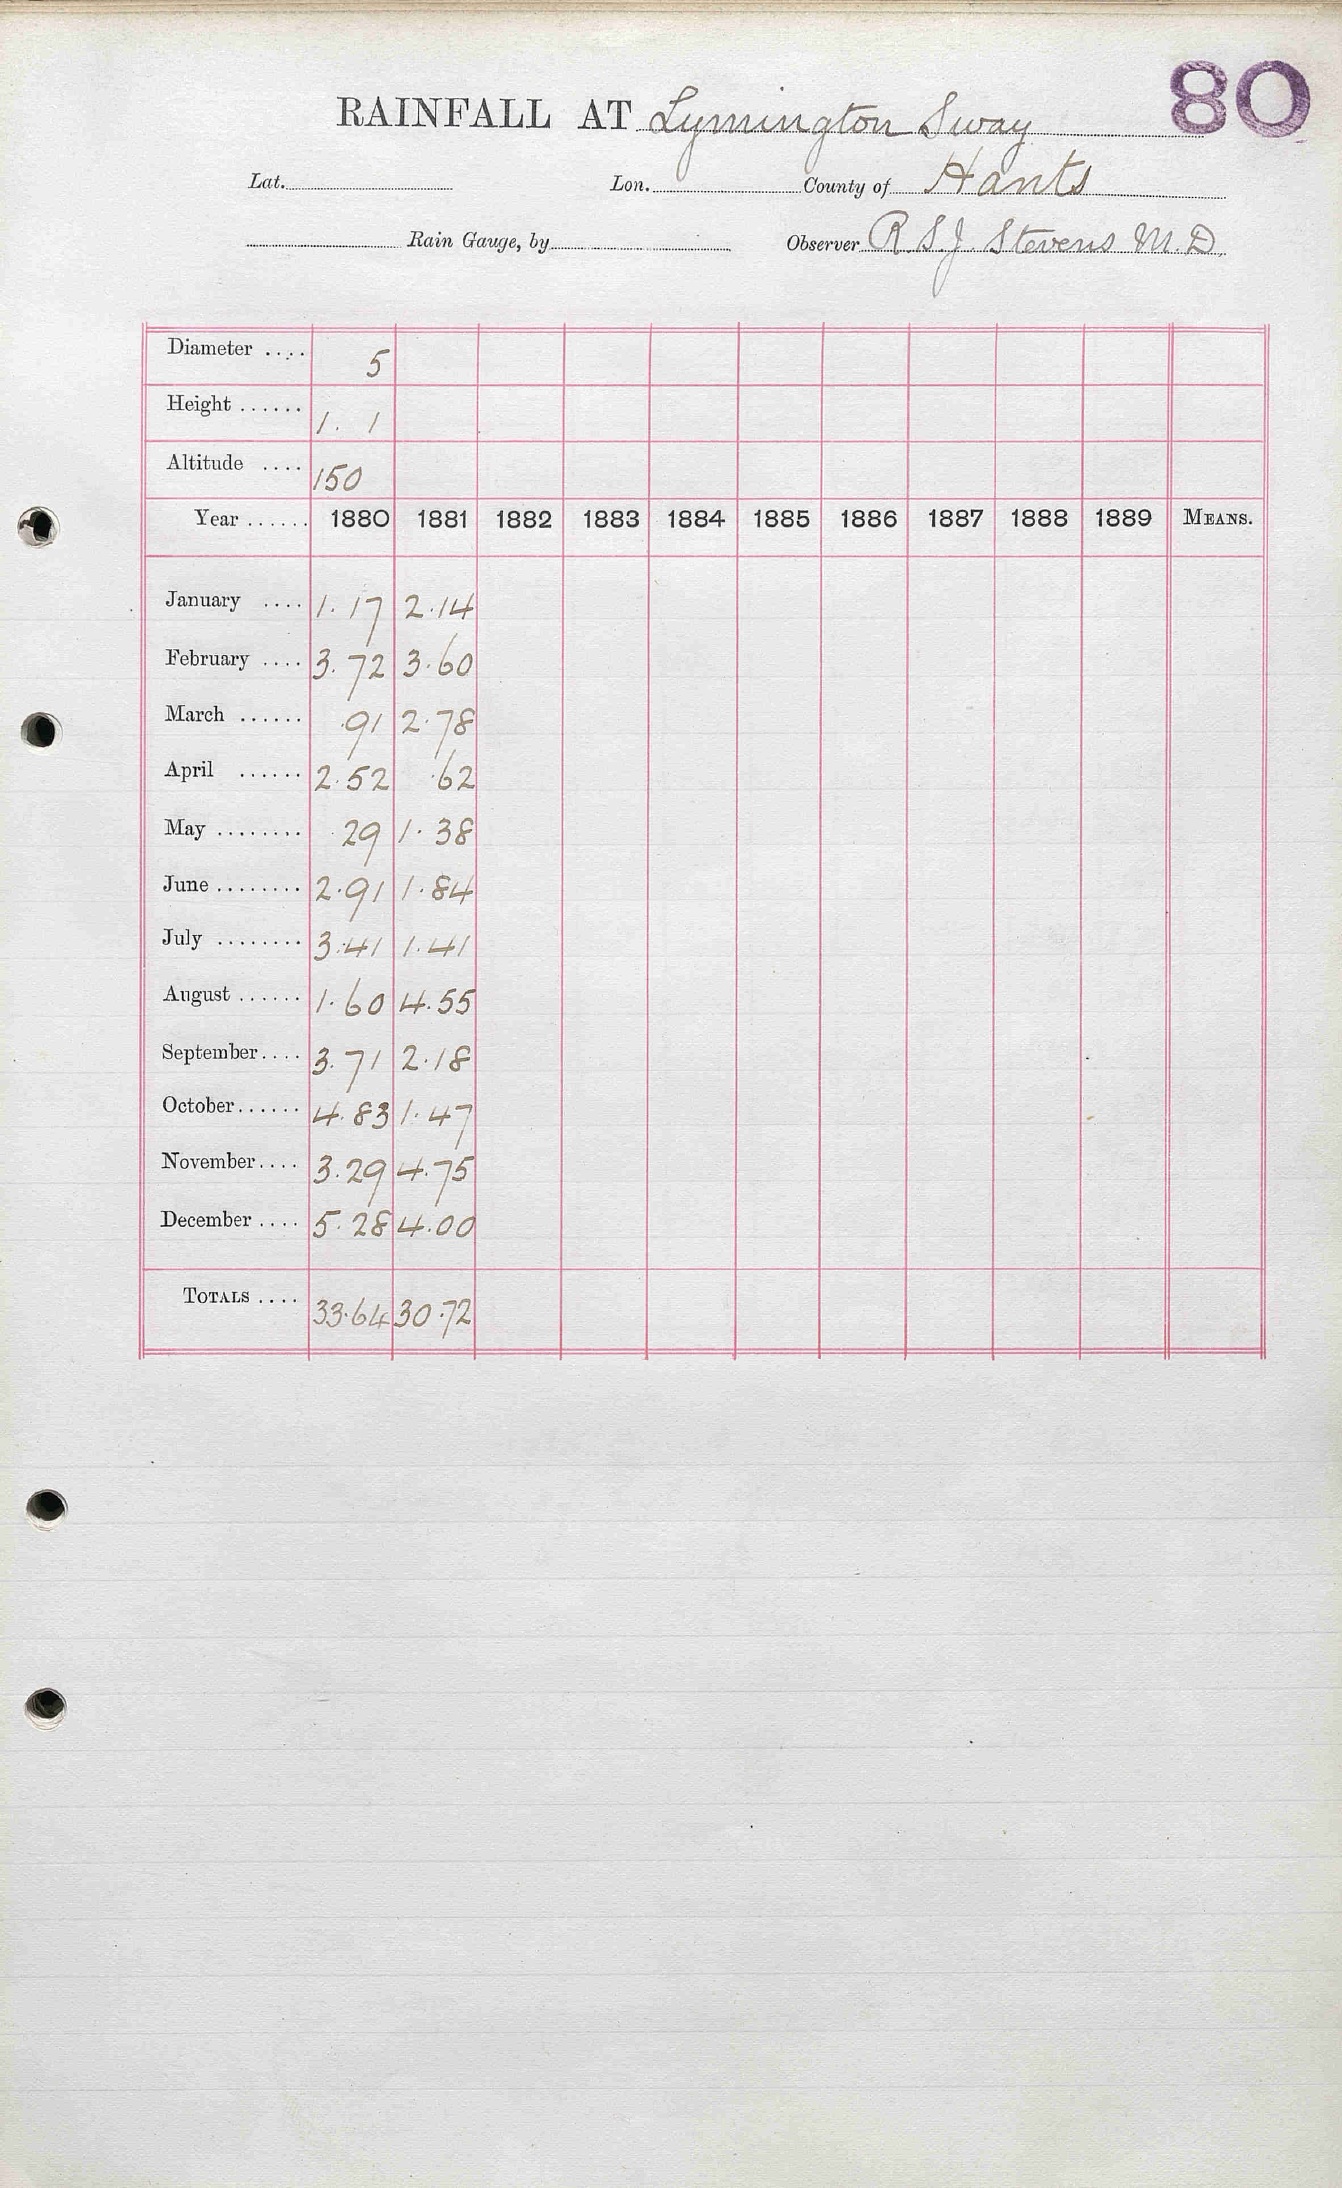 80
RAINFALL AT Lymington Sway
Lat. Lon. County of Hants
Rain Gauge, by Observer R S J Stevens M.D.
Diameter .... 5
Height ...... 1. 1
Altitude .... 150
Year ...... 1880 1881 1882 1883 1884 1885 1886 1887 1888 1889 MEANS.
January .... 1.17 2.14
February .... 3.72 3.60
March ...... .91 2.78
April ...... 2.52 .62
May ........ .29 1.38
June ........ 2.91 1.84
July ........ 3.41 1.41
August ...... 1.60 4.55
September.... 3.71 2.18
October...... 4.83 1.47
November.... 3.29 4.75
December .... 5.28 4.00
TOTALS .... 33.64 30.72